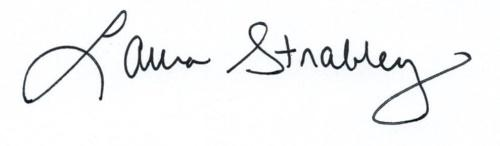 Laura Strabley